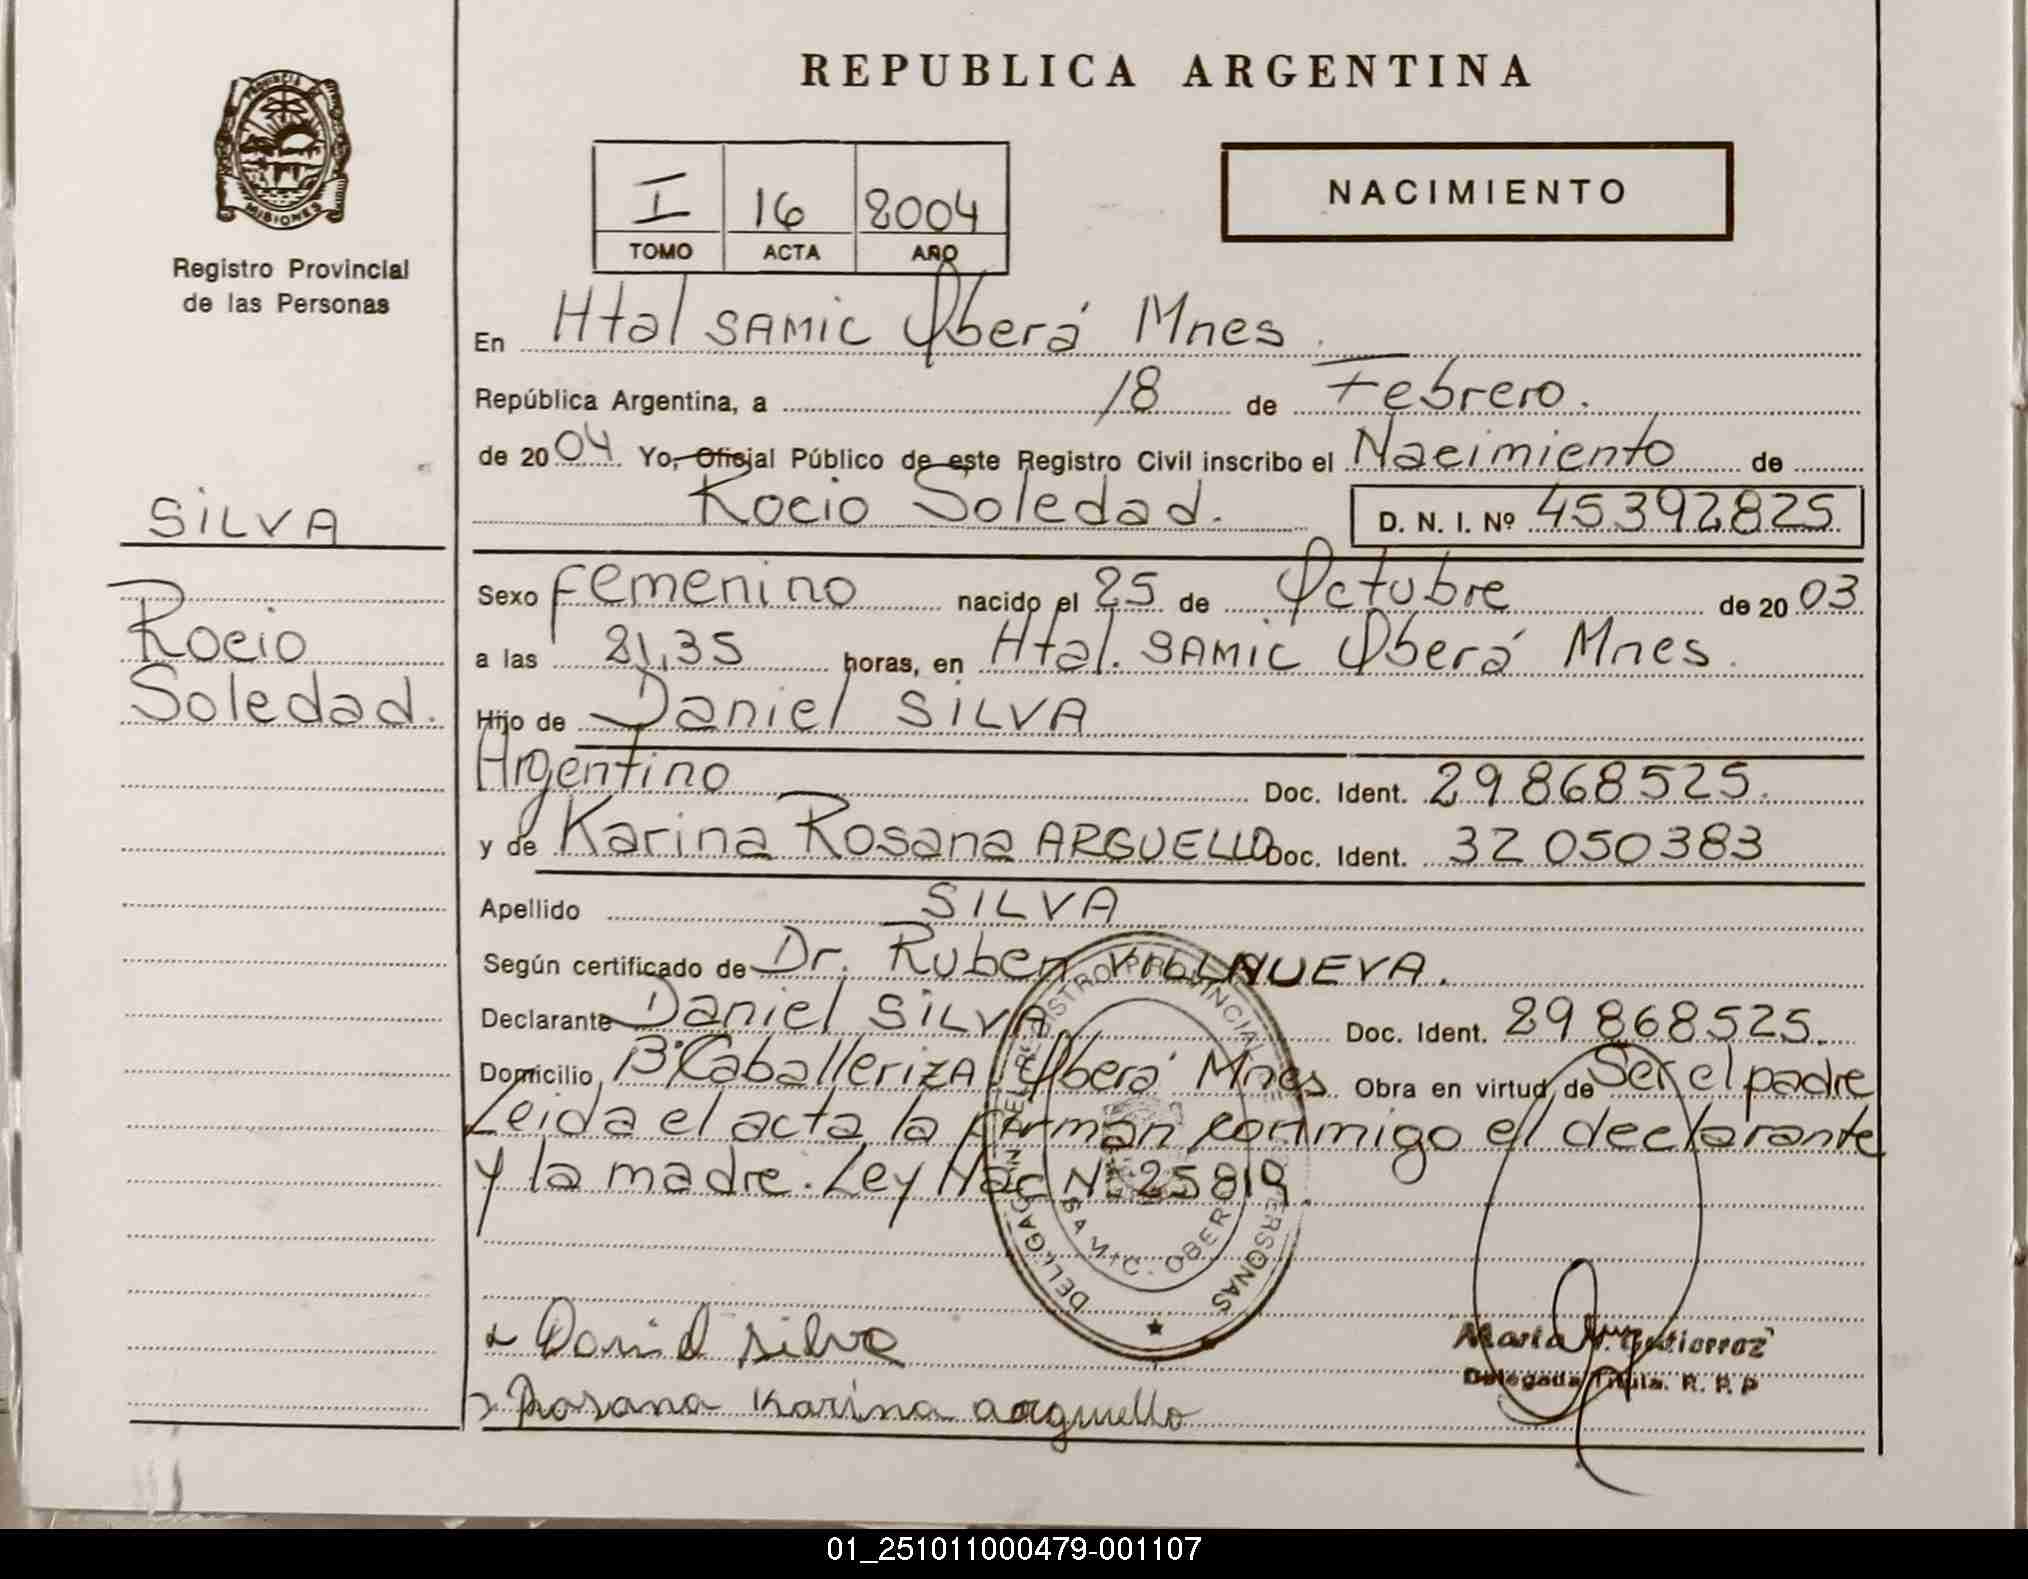 REPUBLICA ARGENTINA
PROVINCIA DE
MISIONES
Registro Provincial
de las Personas
I 16 2004
TOMO ACTA AÑO
NACIMIENTO
En Htal SAMIC Oberá Mnes.
República Argentina, a 18 de Febrero.
de 2004 Yo, Oficial Público de este Registro Civil inscribo el Nacimiento de
Rocio Soledad. D. N. I. Nº 45392825
SILVA
Rocio
Soledad.
Sexo femenino nacido el 25 de Octubre de 2003
a las 21,35 horas, en Htal. SAMIC Oberá Mnes.
Hijo de Daniel SILVA
Argentino Doc. Ident. 29868525.
y de Karina Rosana ARGUELLO Doc. Ident. 32050383
Apellido SILVA
Según certificado de Dr. Ruben VILLANUEVA.
Declarante Daniel SILVA Doc. Ident. 29868525.
Domicilio, Bº Caballeriza Oberá Mnes Obra en virtud de Ser el padre
Leida el acta, la firman conmigo el declarante
y la madre. Ley Nac Nº 25819.
REGISTRO PROVINCIAL DE LAS PERSONAS
SAMIC - OBERA
Daniel silva
Rosana Karina arguello
Maria Gutierrez
Delegada Titular R. P. P
01_251011000479-001107